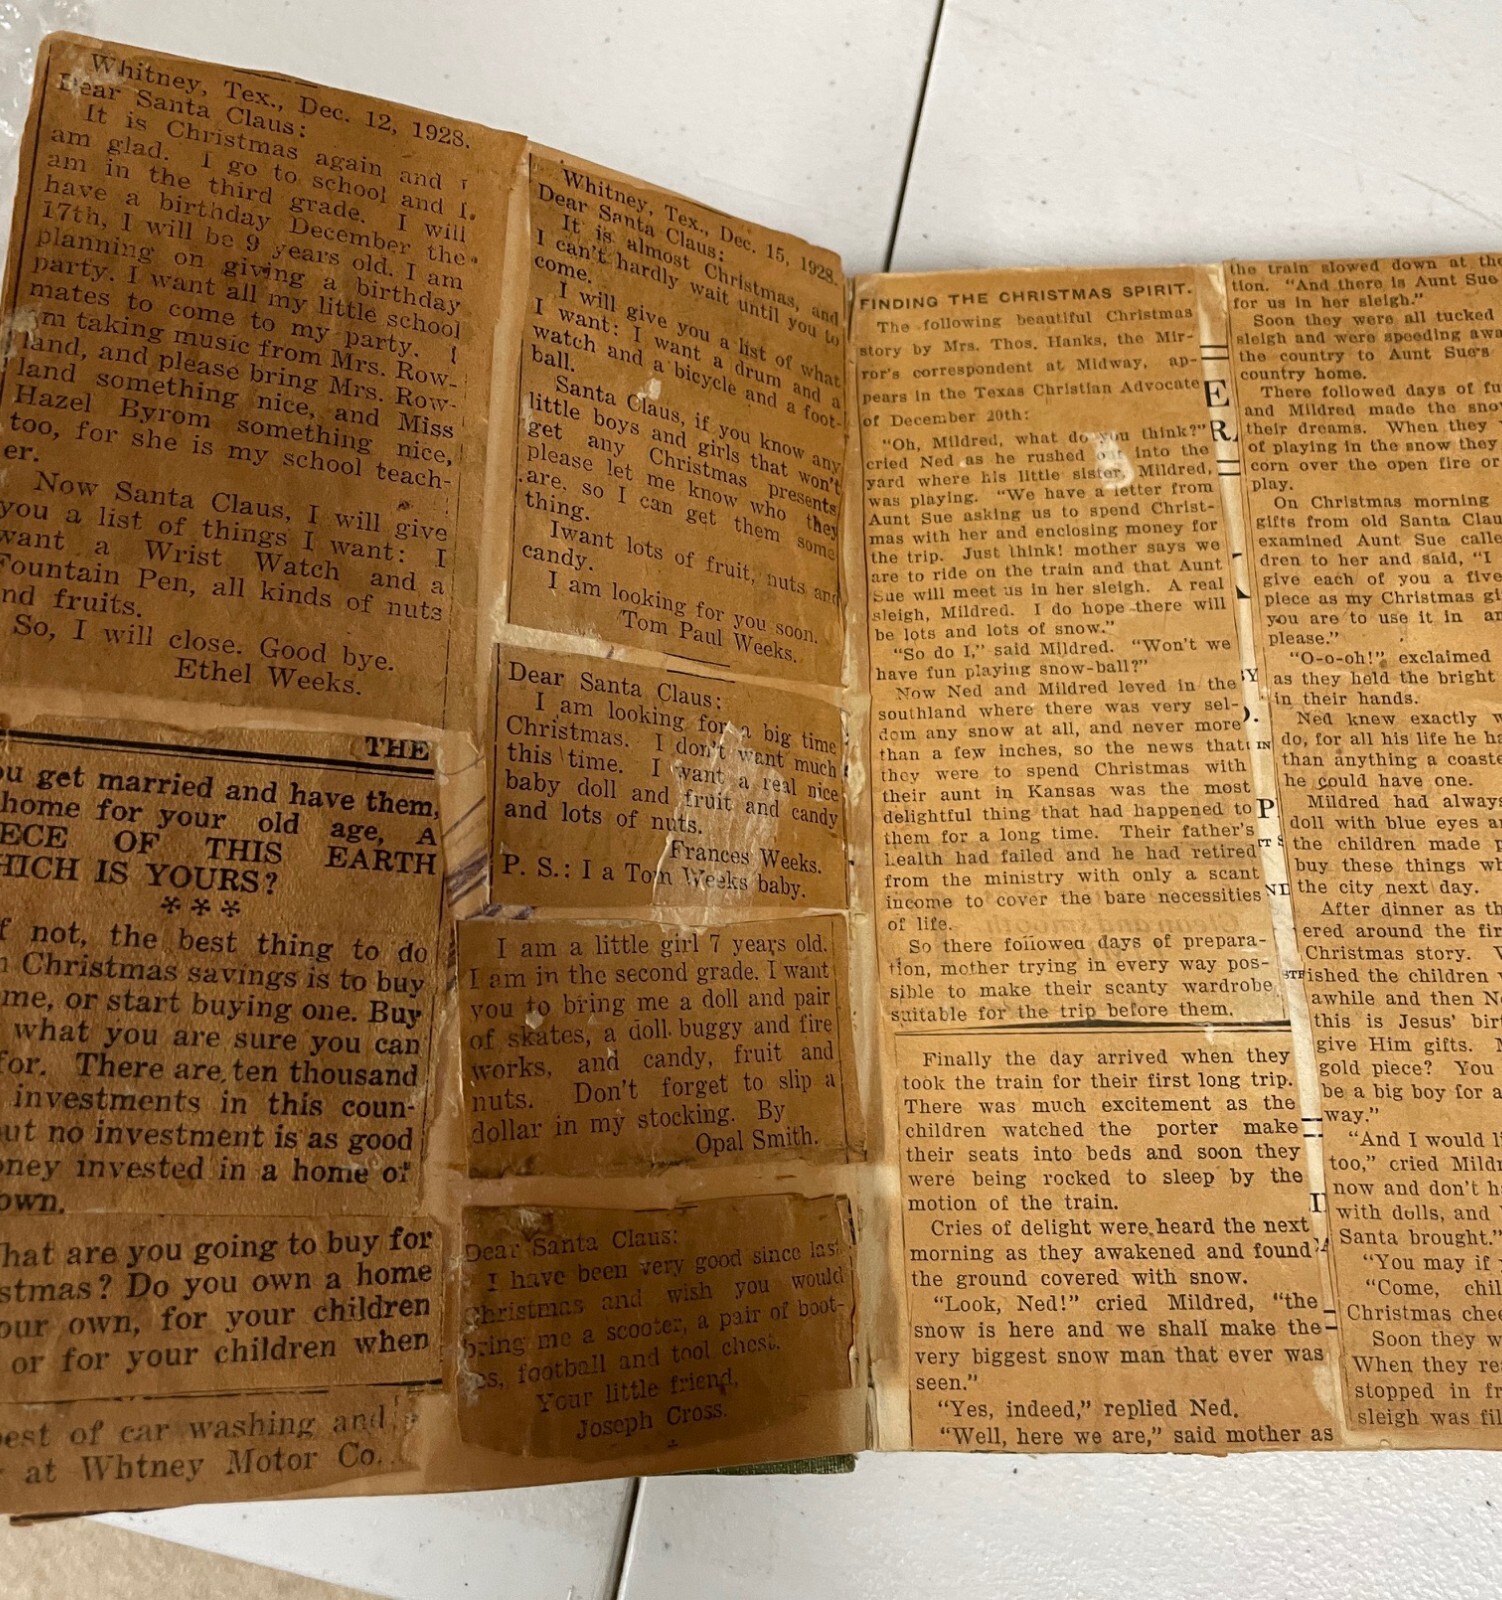 Whitney, Tex., Dec. 12, 1928.
Dear Santa Claus:
It is Christmas again and I
am glad. I go to school and I
am in the third grade. I will
have a birthday December the
17th, I will be 9 years old. I am
planning on giving a birthday
party. I want all my little school
mates to come to my party. I
m taking music from Mrs. Row-
land, and please bring Mrs. Row-
land something nice, and Miss
Hazel Byrom something nice,
too, for she is my school teach-
er.
Now Santa Claus, I will give
you a list of things I want: I
want a Wrist Watch and a
Fountain Pen, all kinds of nuts
nd fruits.
So, I will close. Good bye.
Ethel Weeks.
THE
ou get married and have them,
home for your old age, A
ECE OF THIS EARTH
HICH IS YOURS?
***
f not, the best thing to do
Christmas savings is to buy
me, or start buying one. Buy
what you are sure you can
for. There are ten thousand
investments in this coun-
ut no investment is as good
oney invested in a home of
own.
hat are you going to buy for
stmas? Do you own a home
our own, for your children
or for your children when
est of car washing and
at Whtney Motor Co.
Whitney, Tex., Dec. 15, 1928.
Dear Santa Claus:
It is almost Christmas, and
I can't hardly wait until you to
come.
I will give you a list of what
I want: I want a drum and a
watch and a bicycle and a foot-
ball.
Santa Claus, if you know any
little boys and girls that won't
get any Christmas presents
please let me know who they
are, so I can get them some
thing.
Iwant lots of fruit, nuts and
candy.
I am looking for you soon.
Tom Paul Weeks.
Dear Santa Claus:
I am looking for a big time
Christmas. I don't want much
this time. I want a real nice
baby doll and fruit and candy
and lots of nuts.
Frances Weeks.
P. S.: I a Tom Weeks baby.
I am a little girl 7 years old.
I am in the second grade. I want
you to bring me a doll and pair
of skates, a doll buggy and fire
works, and candy, fruit and
nuts. Don't forget to slip a
dollar in my stocking. By
Opal Smith.
Dear Santa Claus:
I have been very good since last
Christmas and wish you would
bring me a scooter, a pair of boot-
es, football and tool chest.
Your little friend,
Joseph Cross.
FINDING THE CHRISTMAS SPIRIT.
The following beautiful Christmas
story by Mrs. Thos. Hanks, the Mir-
ror's correspondent at Midway, ap-
pears in the Texas Christian Advocate
of December 20th:
"Oh, Mildred, what do you think?"
cried Ned as he rushed out into the
yard where his little sister, Mildred,
was playing. "We have a letter from
Aunt Sue asking us to spend Christ-
mas with her and enclosing money for
the trip. Just think! mother says we
are to ride on the train and that Aunt
Sue will meet us in her sleigh. A real
sleigh, Mildred. I do hope there will
be lots and lots of snow."
"So do I," said Mildred. "Won't we
have fun playing snow-ball?"
Now Ned and Mildred leved in the
southland where there was very sel-
dom any snow at all, and never more
than a few inches, so the news that
they were to spend Christmas with
their aunt in Kansas was the most
delightful thing that had happened to
them for a long time. Their father's
health had failed and he had retired
from the ministry with only a scant
income to cover the bare necessities
of life.
So there followed days of prepara-
tion, mother trying in every way pos-
sible to make their scanty wardrobe
suitable for the trip before them.
Finally the day arrived when they
took the train for their first long trip.
There was much excitement as the
children watched the porter make
their seats into beds and soon they
were being rocked to sleep by the
motion of the train.
Cries of delight were heard the next
morning as they awakened and found
the ground covered with snow.
"Look, Ned!" cried Mildred, "the
snow is here and we shall make the
very biggest snow man that ever was
seen."
"Yes, indeed," replied Ned.
"Well, here we are," said mother as
E
R
BY
IN
P
ND
the train slowed down at the
tion. "And there is Aunt Sue
for us in her sleigh."
Soon they were all tucked
sleigh and were speeding awa
the country to Aunt Sue's
country home.
There followed days of fu
and Mildred made the snow
their dreams. When they
of playing in the snow they
corn over the open fire or
play.
On Christmas morning
gifts from old Santa Clau
examined Aunt Sue calle
dren to her and said, "I
give each of you a five
piece as my Christmas gi
you are to use it in an
please."
"O-o-oh!" exclaimed
as they held the bright
in their hands.
Ned knew exactly w
do, for all his life he ha
than anything a coaste
he could have one.
Mildred had always
doll with blue eyes a
the children made p
buy these things wh
the city next day.
After dinner as th
ered around the fir
Christmas story. W
ished the children
awhile and then Ne
this is Jesus' birt
give Him gifts. M
gold piece? You
be a big boy for a
way."
"And I would li
too," cried Mildr
now and don't h
with dolls, and
Santa brought."
"You may if y
"Come, chil
Christmas chee
Soon they w
When they re
stopped in fr
sleigh was fil